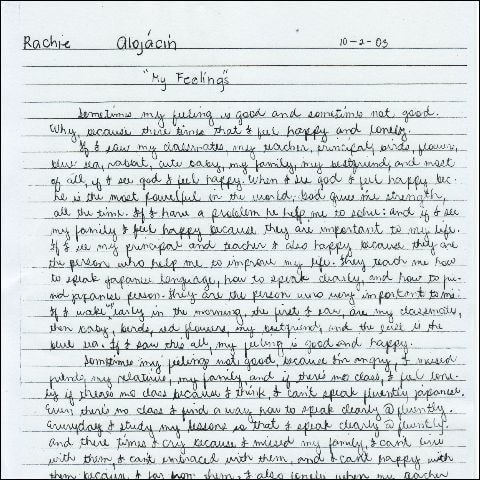 Rachie Alojácin 10-2-03
"My Feelings"
Sometimes my feeling is good and sometimes not good.
Why, because there times that I feel happy and lonely.
If I saw my classmates, my teacher, principal, birds, flowers,
blue sea, rabbit, cute baby, my family, my bestfriend, and most
of all, if I see god I feel happy. When I see god I feel happy bec.
he is the most powerful in the world. God give me strength,
all the time. If I have a problem he help me to solve: and if I see
my family I feel happy because they are important to my life.
If I see my principal and teacher I also happy because they are
the person who help me to improve my life. They teach me how
to speak japanese language, how to speak clearly, and how to
japanese person. They are the person who very important to me.
If I wake early in the morning, the first I saw, are my classmates,
then baby, birds, red flowers, my bestfriend, and the is the
blue sea. If I saw this all, my feeling is good and happy.
Sometimes my feelings not good, because I'm angry, I missed
friends, my relatives, my family, and if there's no class, I feel lone-
ly if there's no class because I think, I can't speak fluently japanese.
Even there's no class I find a way how to speak clearly @ fluently.
Everyday I study my lessons so that I speak clearly @ fluently.
And there times I cry because I missed my family, I can't live
with them, I can't embraced with them, and I can't happy with
them because, I far from them. I also lonely when my teacher